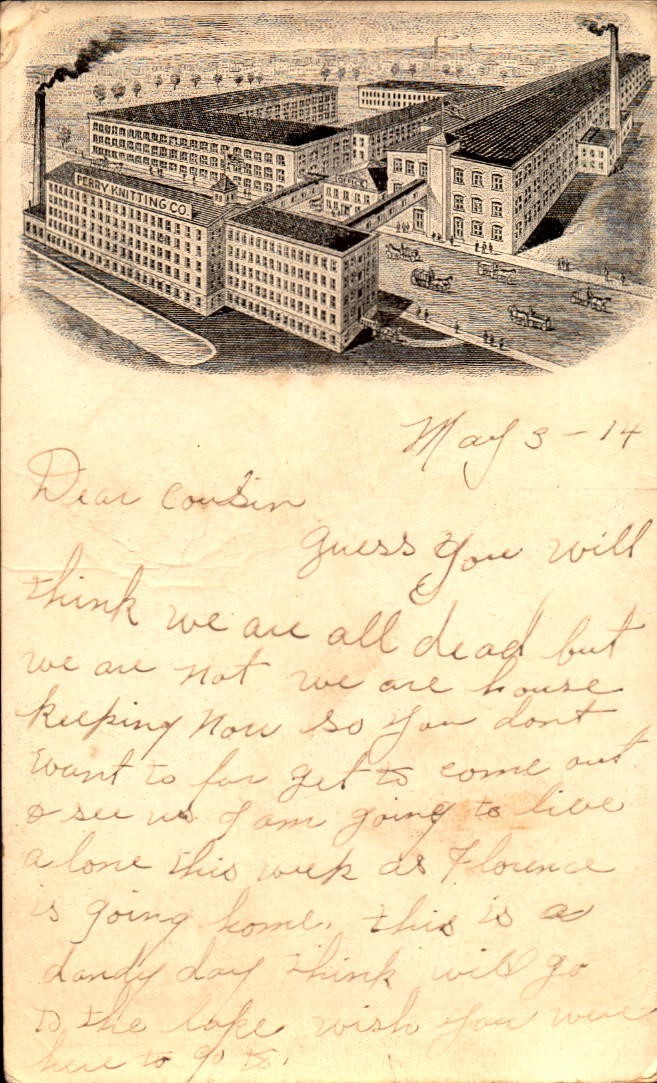 PERRY KNITTING CO.
OFFICE
May 3-14
Dear cousin
guess you will
think we are all dead but
we are not we are house
keeping now so you dont
want to for get to come out
& see us I am going to live
a lone this week as Florence
is going home. this is a
dandy day think will go
to the lake wish you were
here to go to.